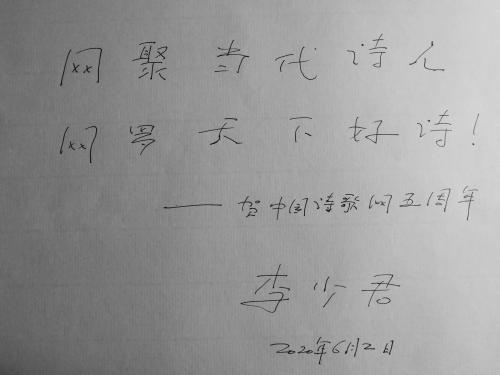 网聚当代诗人
网罗天下好诗！
——贺中国诗歌网五周年
李少君
2020年6月2日